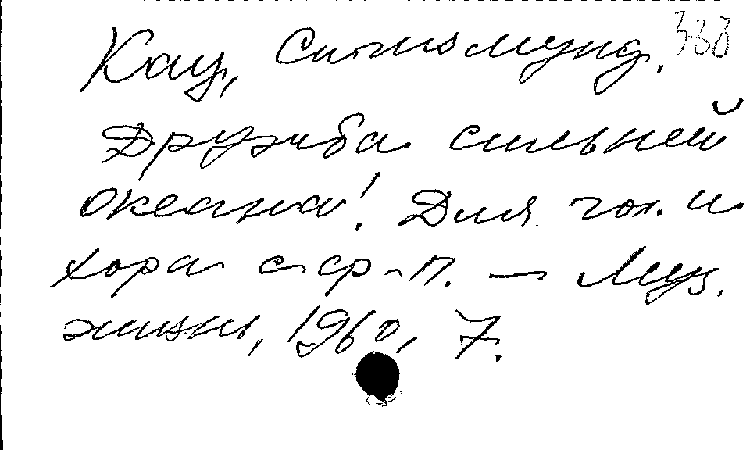 Кац, Сигизмунд. 388
Дружба сильней
океана! Для гол. и
хора с ф-п. — Муз.
жизнь, 1960, 7.